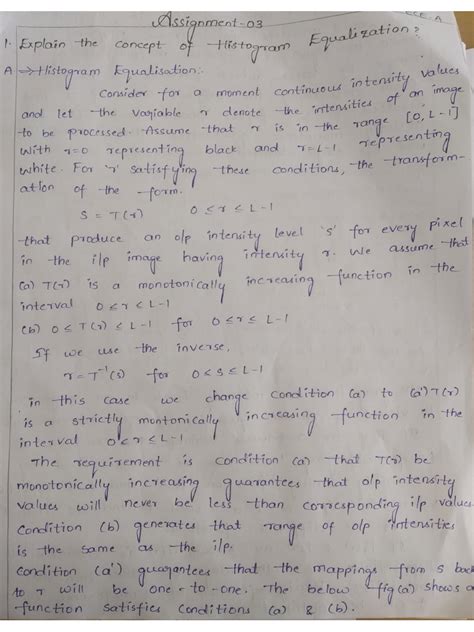 Assignment-03
ECE-A
1. Explain the concept of Histogram Equalization?
A → Histogram Equalisation:.
Consider for a moment continuous intensity values
and let the variable r denote the intensities of an image
to be processed. Assume that r is in the range [0, L-1]
With r=0 representing black and r=L-1 representing
white. For 'r' satisfying these conditions, the transform-
ation of the form.
S = T(r)   0 ≤ r ≤ L-1
that produce an o/p intensity level 's' for every pixel
in the i/p image having intensity r. We assume that
(a) T(r) is a monotonically increasing function in the
interval 0 ≤ r ≤ L-1
(b) 0 ≤ T(r) ≤ L-1 for 0 ≤ r ≤ L-1
If we use the inverse,
r = T⁻¹(s) for 0 ≤ s ≤ L-1
in this case we change condition (a) to (a') T(r)
is a strictly montonically increasing function in the
interval 0 ≤ r ≤ L-1
The requirement is condition (a) that T(r) be
monotonically increasing guarantees that o/p intensity
values will never be less than corresponding i/p values
Condition (b) generates that range of o/p intensities
is the same as the i/p.
Condition (a') guarantees that the mappings from s back
to r will be one-to-one. The below fig(a) shows a
function satisfies conditions (a) & (b).